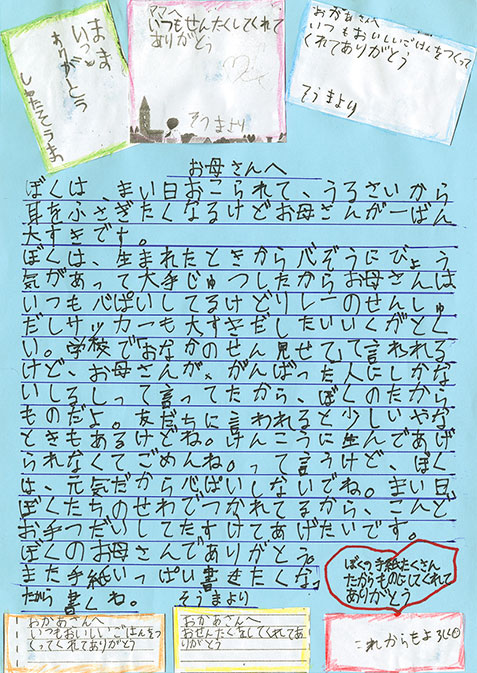 まま
いつも
ありがとう
ママへ
いつもせんたくしてくれて
ありがとう
そうまより
おかあさんへ
いつもおいしいごはんをつくって
くれてありがとう
そうまより
お母さんへ
ぼくは、まい日おこられて、うるさいから
耳をふさぎたくなるけどお母さんが一ばん
大すきです。
ぼくは、生まれたときから心ぞうにびょう
気があって大手じゅつしたからお母さんは
いつも心ぱいしてるけどリレーのせんしゅ
だしサッカーも大すきだしたいいくがとく
い。学校で「おなかのせん見せて」って言われる
けど、お母さんが、がんばった人にしかな
いしるしって言ってたから、ぼくのたから
ものだよ。友だちに言われると少しいやな
ときもあるけどね。けんこうに生んであげ
られなくてごめんね。って言うけど、ぼく
は、元気だから心ぱいしないでね。まい日
ぼくたちのせわでつかれてるから、こんど
お手つだいしてたすけてあげたいです。
ぼくのお母さんでありがとう。
また手紙いっぱい書きたくな
たから書くね。 そうまより
ぼくの手紙たくさん
たからものにしてくれて
ありがとう
おかあさんへ
いつもおいしいごはんをつ
くってくれてありがとう
おかあさんへ
おせんたくをしてくれてあ
りがとう
これからもよろしく